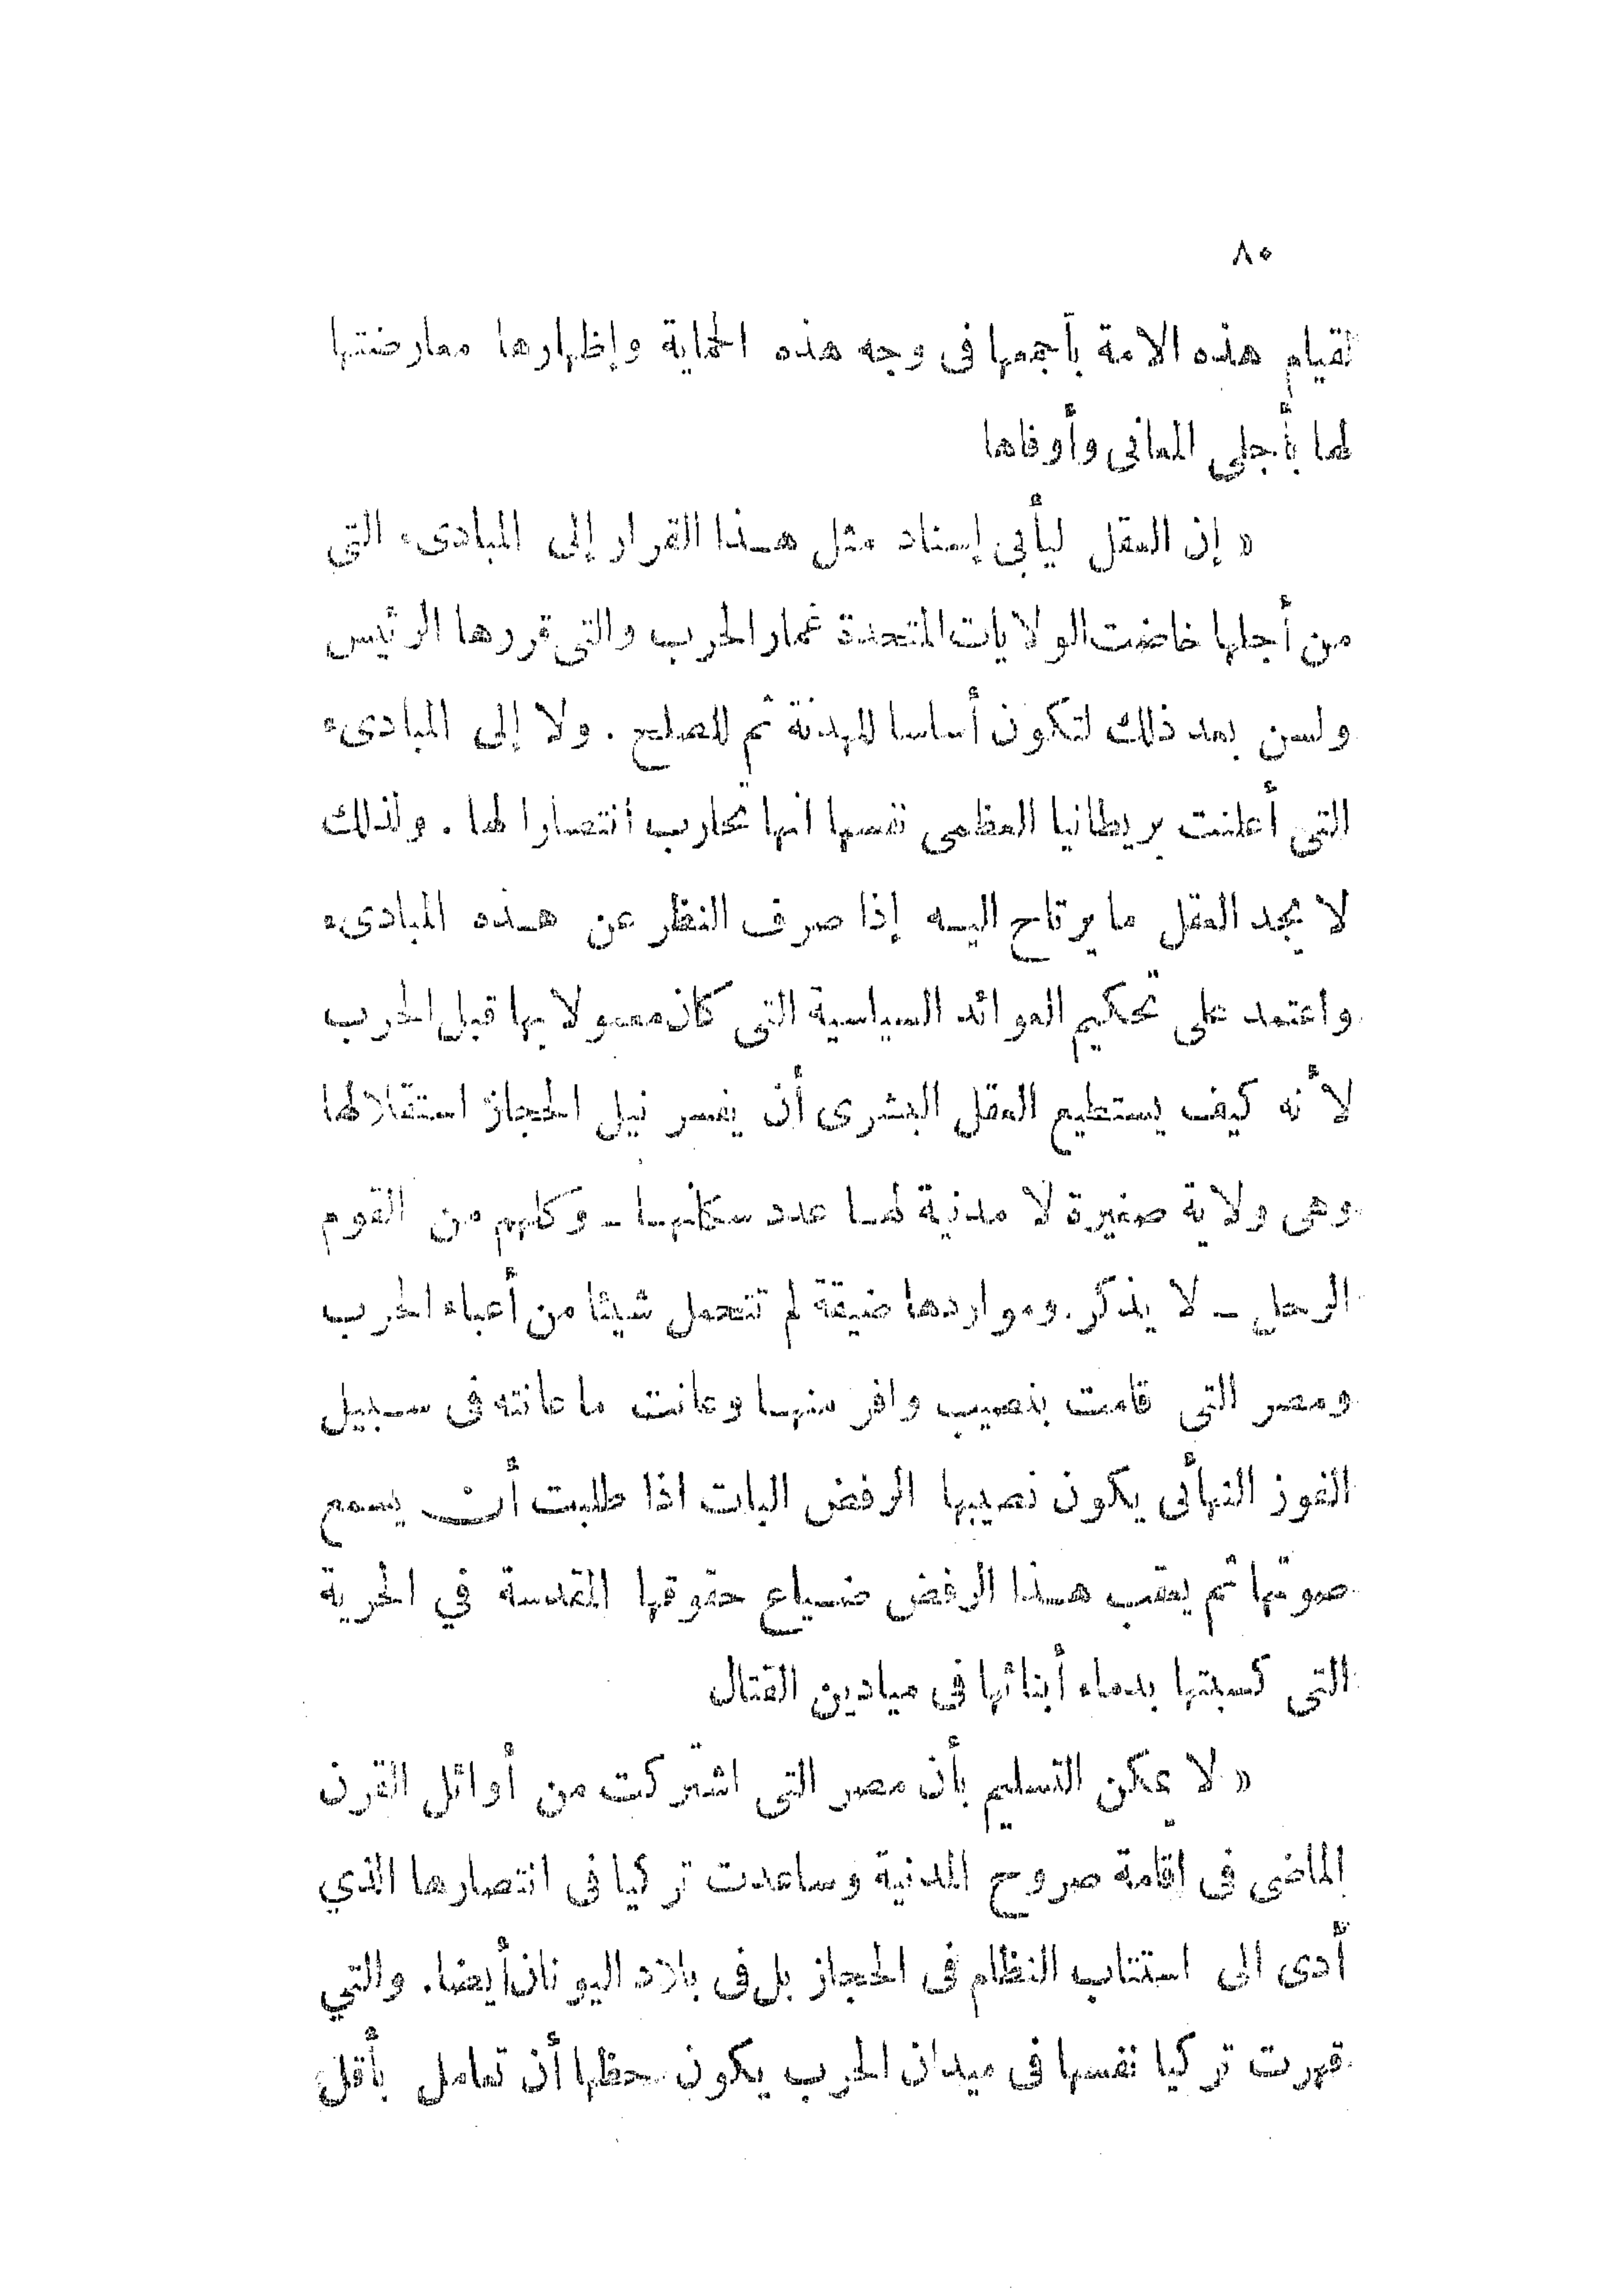 ٨٠
لقيام هذه الامة بأجمعها فى وجه هذه الحماية وإظهارها معارضتها
لها بأجلى المعانى وأوفاها
« إن العقل ليأبى إسناد مثل هـذا القرار إلى المبادىء التى
من أجلها خاضت الولايات المتحدة غمار الحرب والتى قررها الرئيس
ولسن بعد ذلك لتكون أساسا للهدنة ثم للصلح . ولا إلى المبادىء
التى أعلنت بريطانيا العظمى نفسها انها تحارب انتصارا لها . ولذلك
لا يجد العقل ما يرتاح اليـه إذا صرف النظر عن هـذه المبادىء
واعتمد على تحكيم العوائد السياسية التى كان معمولا بها قبل الحرب
لأنه كيف يستطيع العقل البشرى أن يفسر نيل الحجاز استقلالها
وهى ولاية صغيرة لا مدنية لهـا عدد سكانهـا ـ وكلهم من القوم
الرحل ـ لا يذكر . ومواردها ضيقة لم تتحمل شيئا من أعباء الحرب
ومصر التى قامت بنصيب وافر منهـا وعانت ما عانته فى سـبيل
الفوز النهائى يكون نصيبها الرفض البات اذا طلبت أن يسمع
صوتها ثم يعقب هـذا الرفض ضـياع حقوقها المقدسة في الحرية
التى كسبتها بدماء أبنائها فى ميادين القتال
« لا يمكن التسليم بأن مصر التى اشتركت من أوائل القرن
الماضى فى اقامة صروح المدنية وساعدت تركيا فى انتصارها الذي
أدى الى استتاب النظام فى الحجاز بل فى بلاد اليونان أيضا . والتي
قهرت تركيا نفسها فى ميدان الحرب يكون حظها أن تعامل بأقل